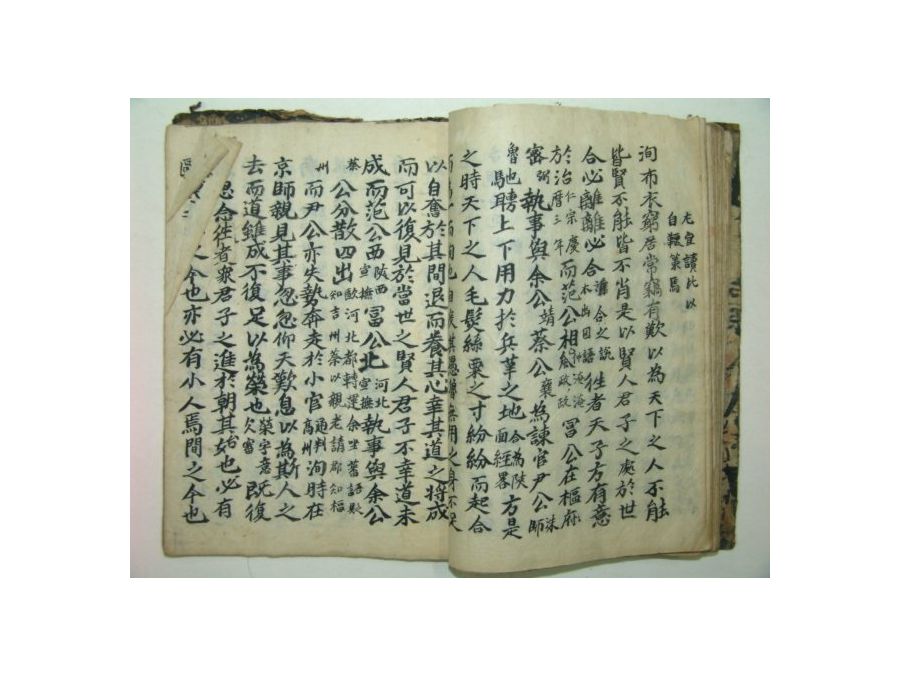 尤宜讀此以
自輕策焉
洵布衣窮居常竊有歎以為天下之人不能
皆賢不能皆不肖是以賢人君子之處於世
合必離離必合 往者天子方有意
於治仁宗慶而范公相 富公在樞府
方曆三年
密弼執事與余公靖蔡公襄為諫官尹公師洙
魯也馳騁上下用力於兵革之地 方是
之時天下之人毛髮絲粟之才紛紛而起合
以自奮於其間退而養其心幸其道之將成
而可以復見於當世之賢人君子不幸道未
成而范公西陝西宣撫富公北河北宣撫執事與余公
蔡公分散四出
州而尹公亦失勢奔走於小官 洵時在
京師親見其事忽忽仰天歎息以為斯人之
去而道雖成不復足以為榮也 既復
思念往者眾君子之進於朝其始也必有
之今也亦必有小人焉間之今也